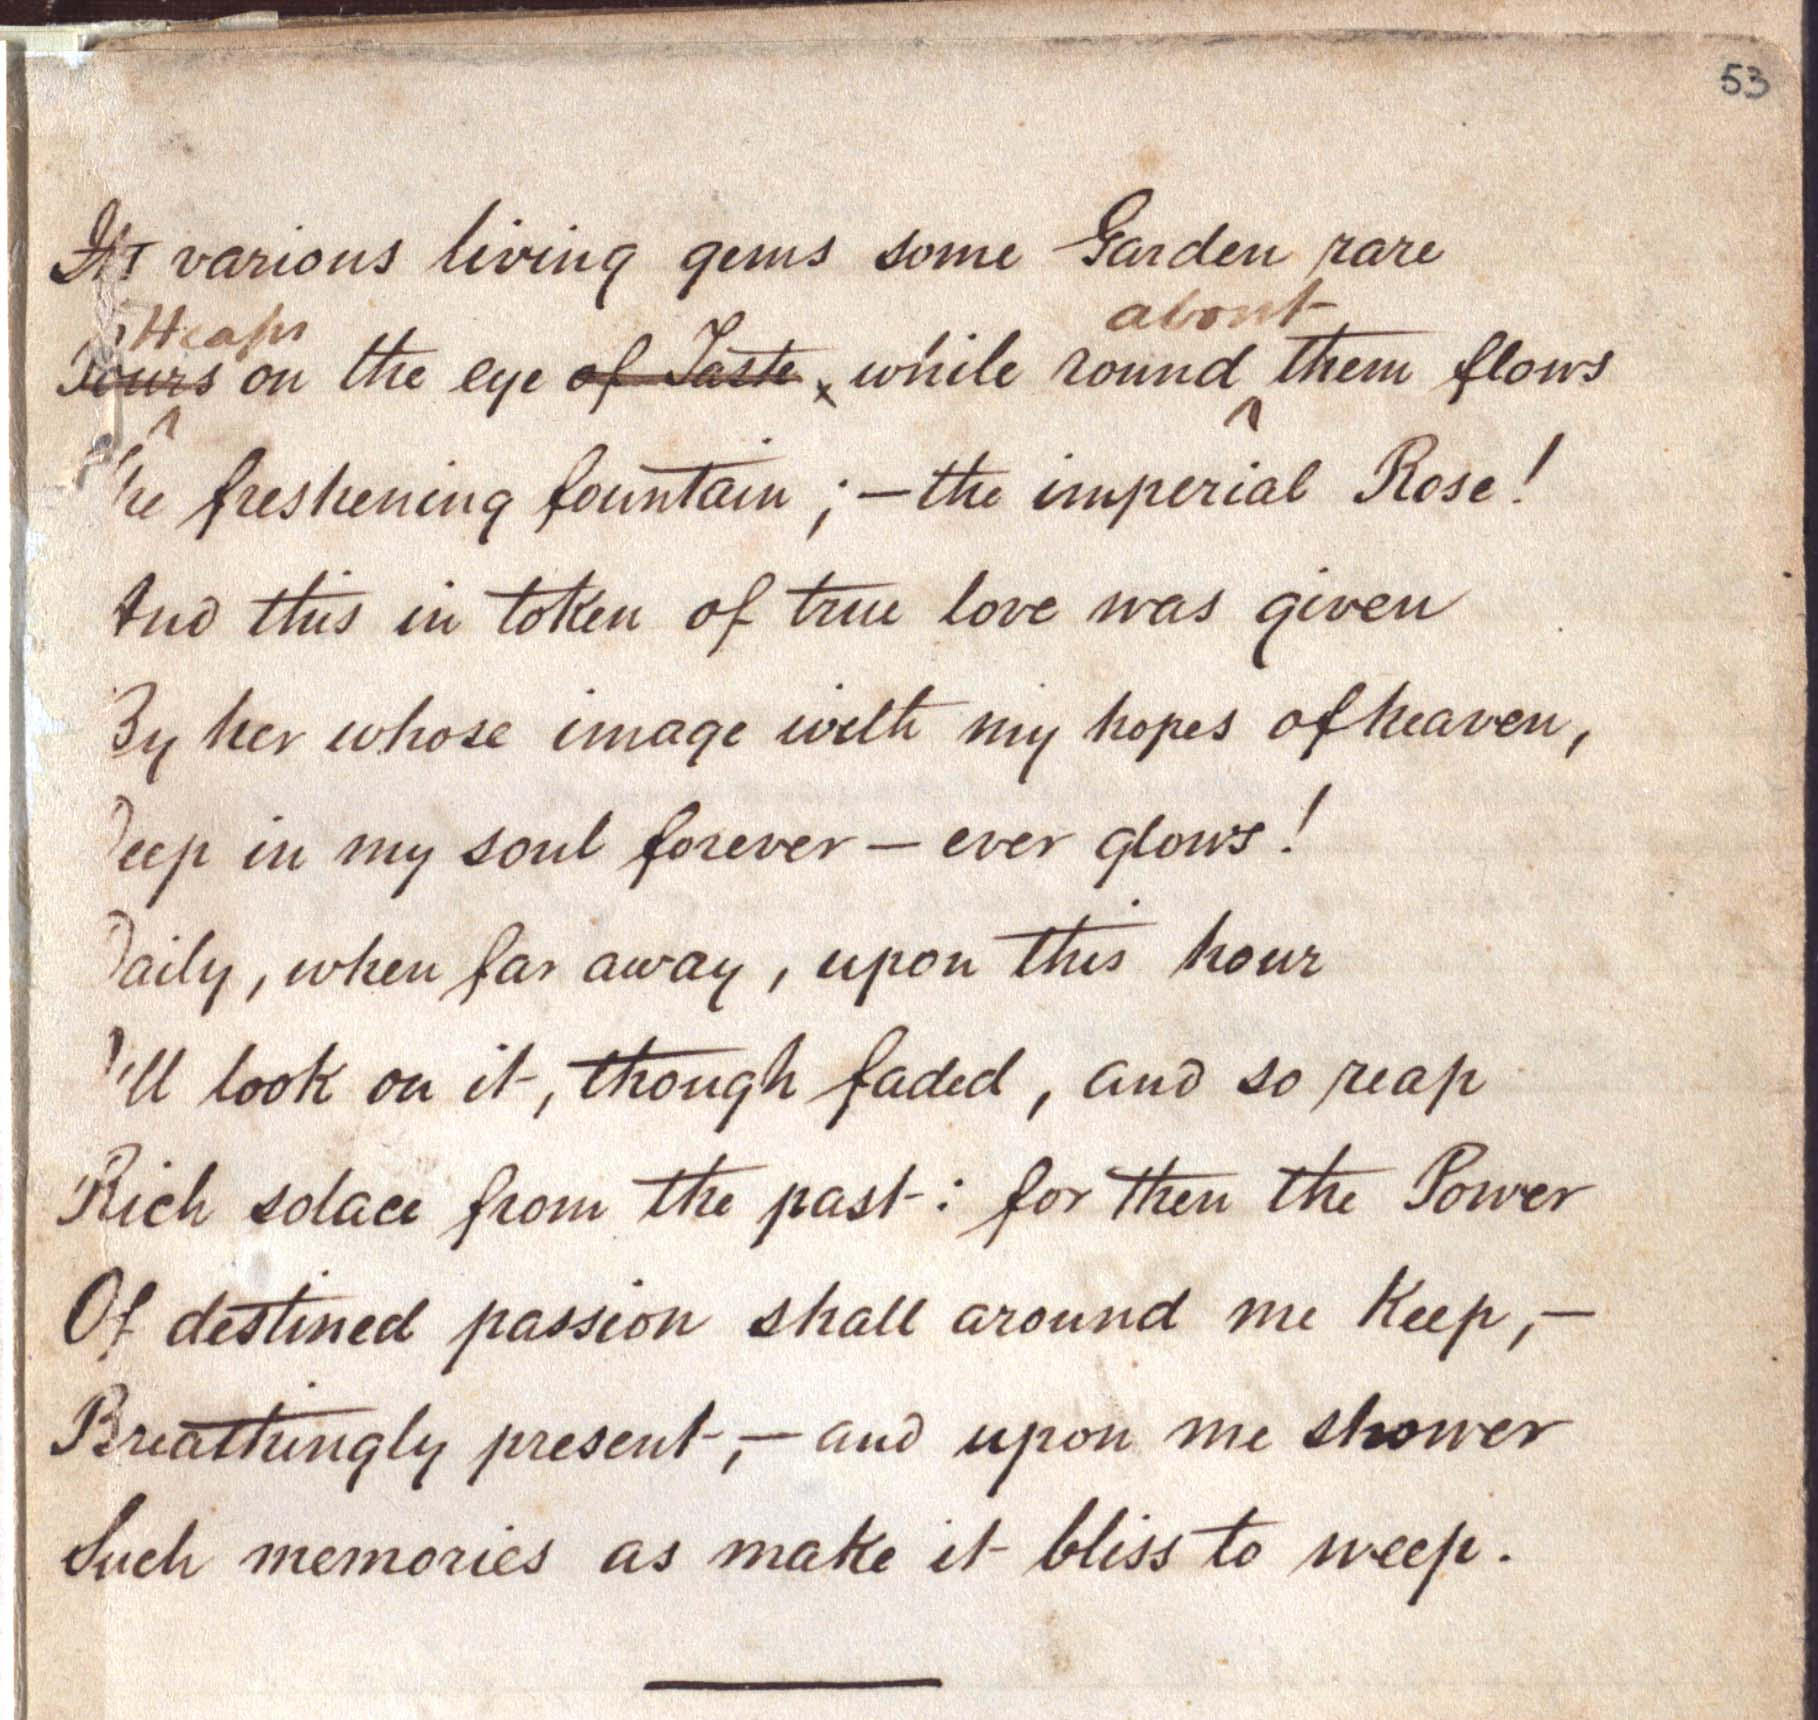 53
various living gems some Garden rare
Heaps about
Pours on the eye of Taste x while round them flows
The freshening fountain ; — the imperial Rose!
And this in token of true love was given
By her whose image with my hopes of heaven,
Deep in my soul forever — ever glows!
Daily, when far away, upon this hour
I'll look on it, though faded, and so reap
Rich solace from the past: for then the Power
Of destined passion shall around me keep, —
Breathingly present, — and upon me shower
Such memories as make it bliss to weep.